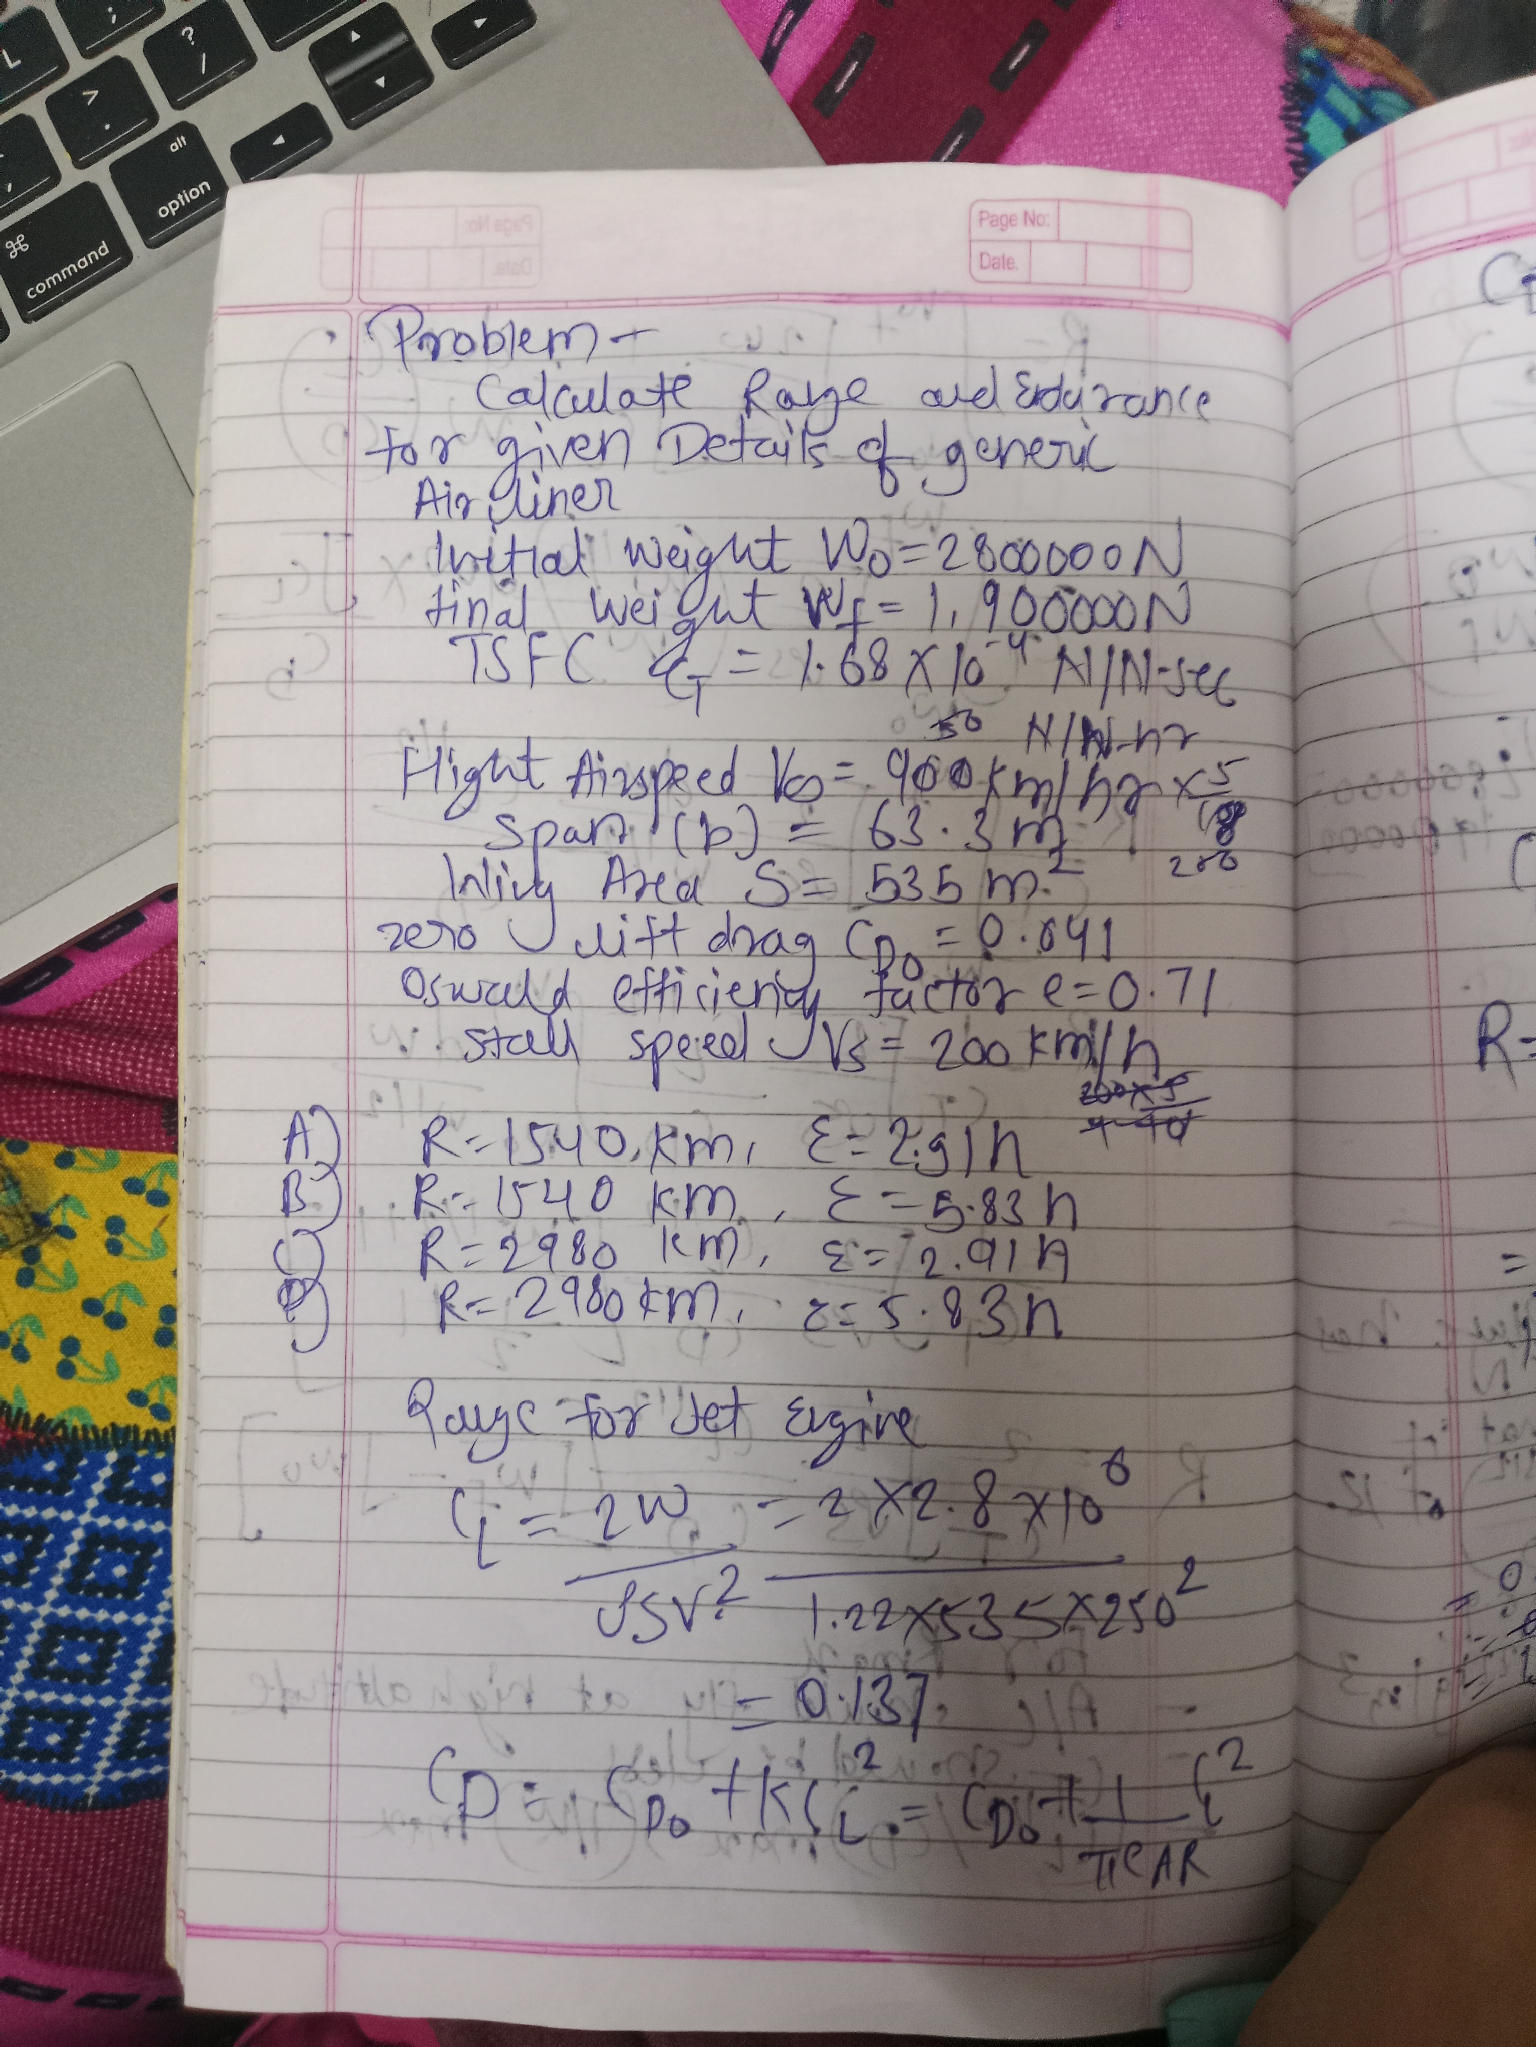 L
;
?
/
>
.
alt
option
⌘
command
Page No:
Date.
Problem -
Calculate Range and Endurance
for given Details of generic
Air liner
Initial weight W₀ = 2800000 N
final weight Wf = 1,900000 N
TSFC C_T = 1.68 × 10⁻⁴ N/N-sec
50 N/N-hr
Flight Airspeed V∞ = 900 km/hr × 5/18
span (b) = 63.3 m
250
Wing Area S = 535 m²
zero lift drag C_D₀ = 0.041
Oswald efficiency factor e = 0.71
stall speed Vs = 200 km/h
A) R = 1540 km, ε = 2.91 h
B) R = 1540 km, ε = 5.83 h
C) R = 2980 km, ε = 2.91 h
D) R = 2980 km, ε = 5.83 h
Range for Jet Engine
C_L = 2W / ρSV² = 2 × 2.8 × 10⁶ / 1.22 × 535 × 250²
= 0.137
C_D = C_D₀ + K C_L² = C_D₀ + 1/πeAR C_L²
R=